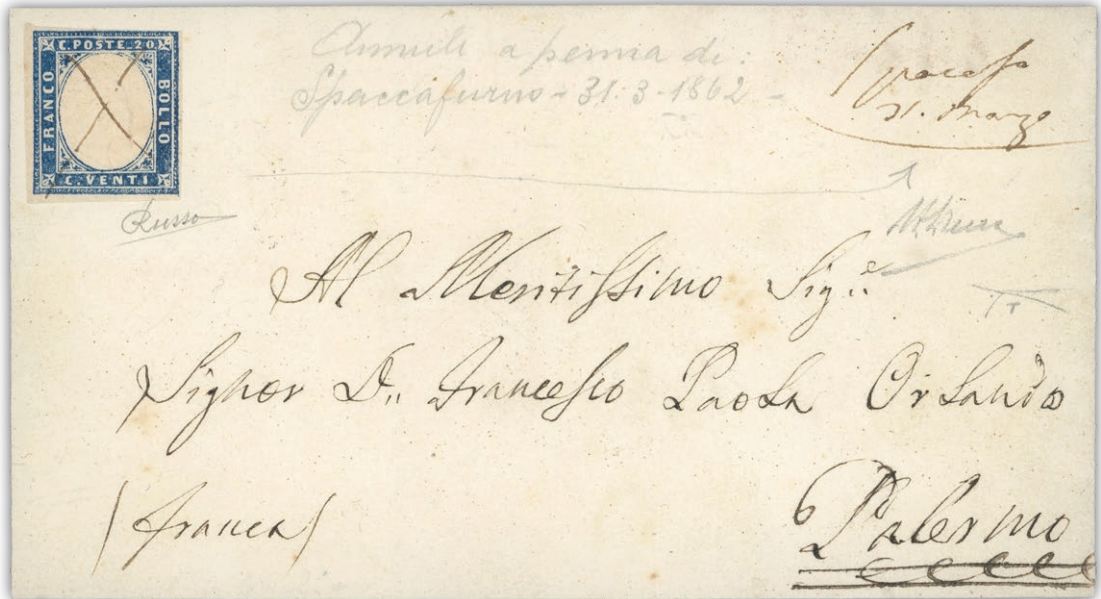 C. POSTE 20
FRANCO
BOLLO
C. VENTI
a penna di:
Spaccafurno - 31.3.1862 -
31. Marzo
Russo
Al Meritissimo Sig.e
Signor D.n Francesco Paola Orlando
(franca)
Palermo